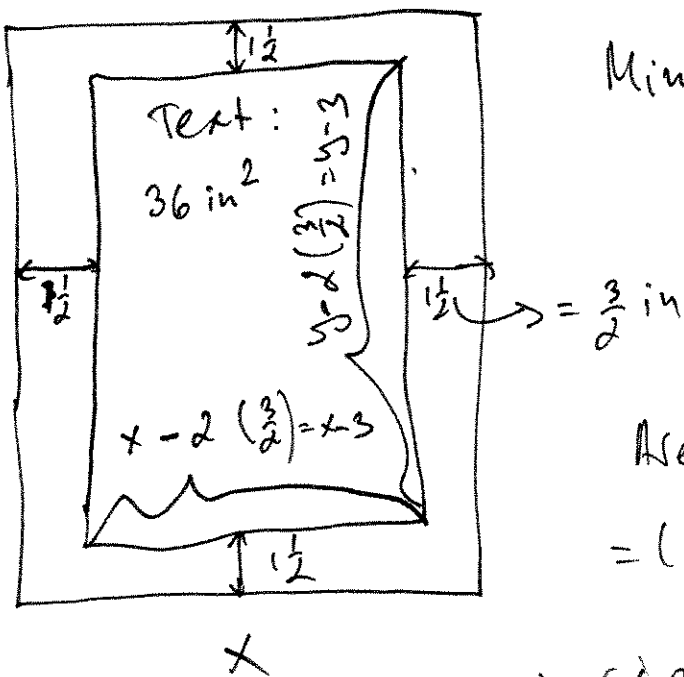 1 1/2
Min
Text:
36 in²
y-2(3/2)=y-3
1 1/2
1 1/2
= 3/2 in
x-2(3/2)=x-3
= (
1 1/2
x